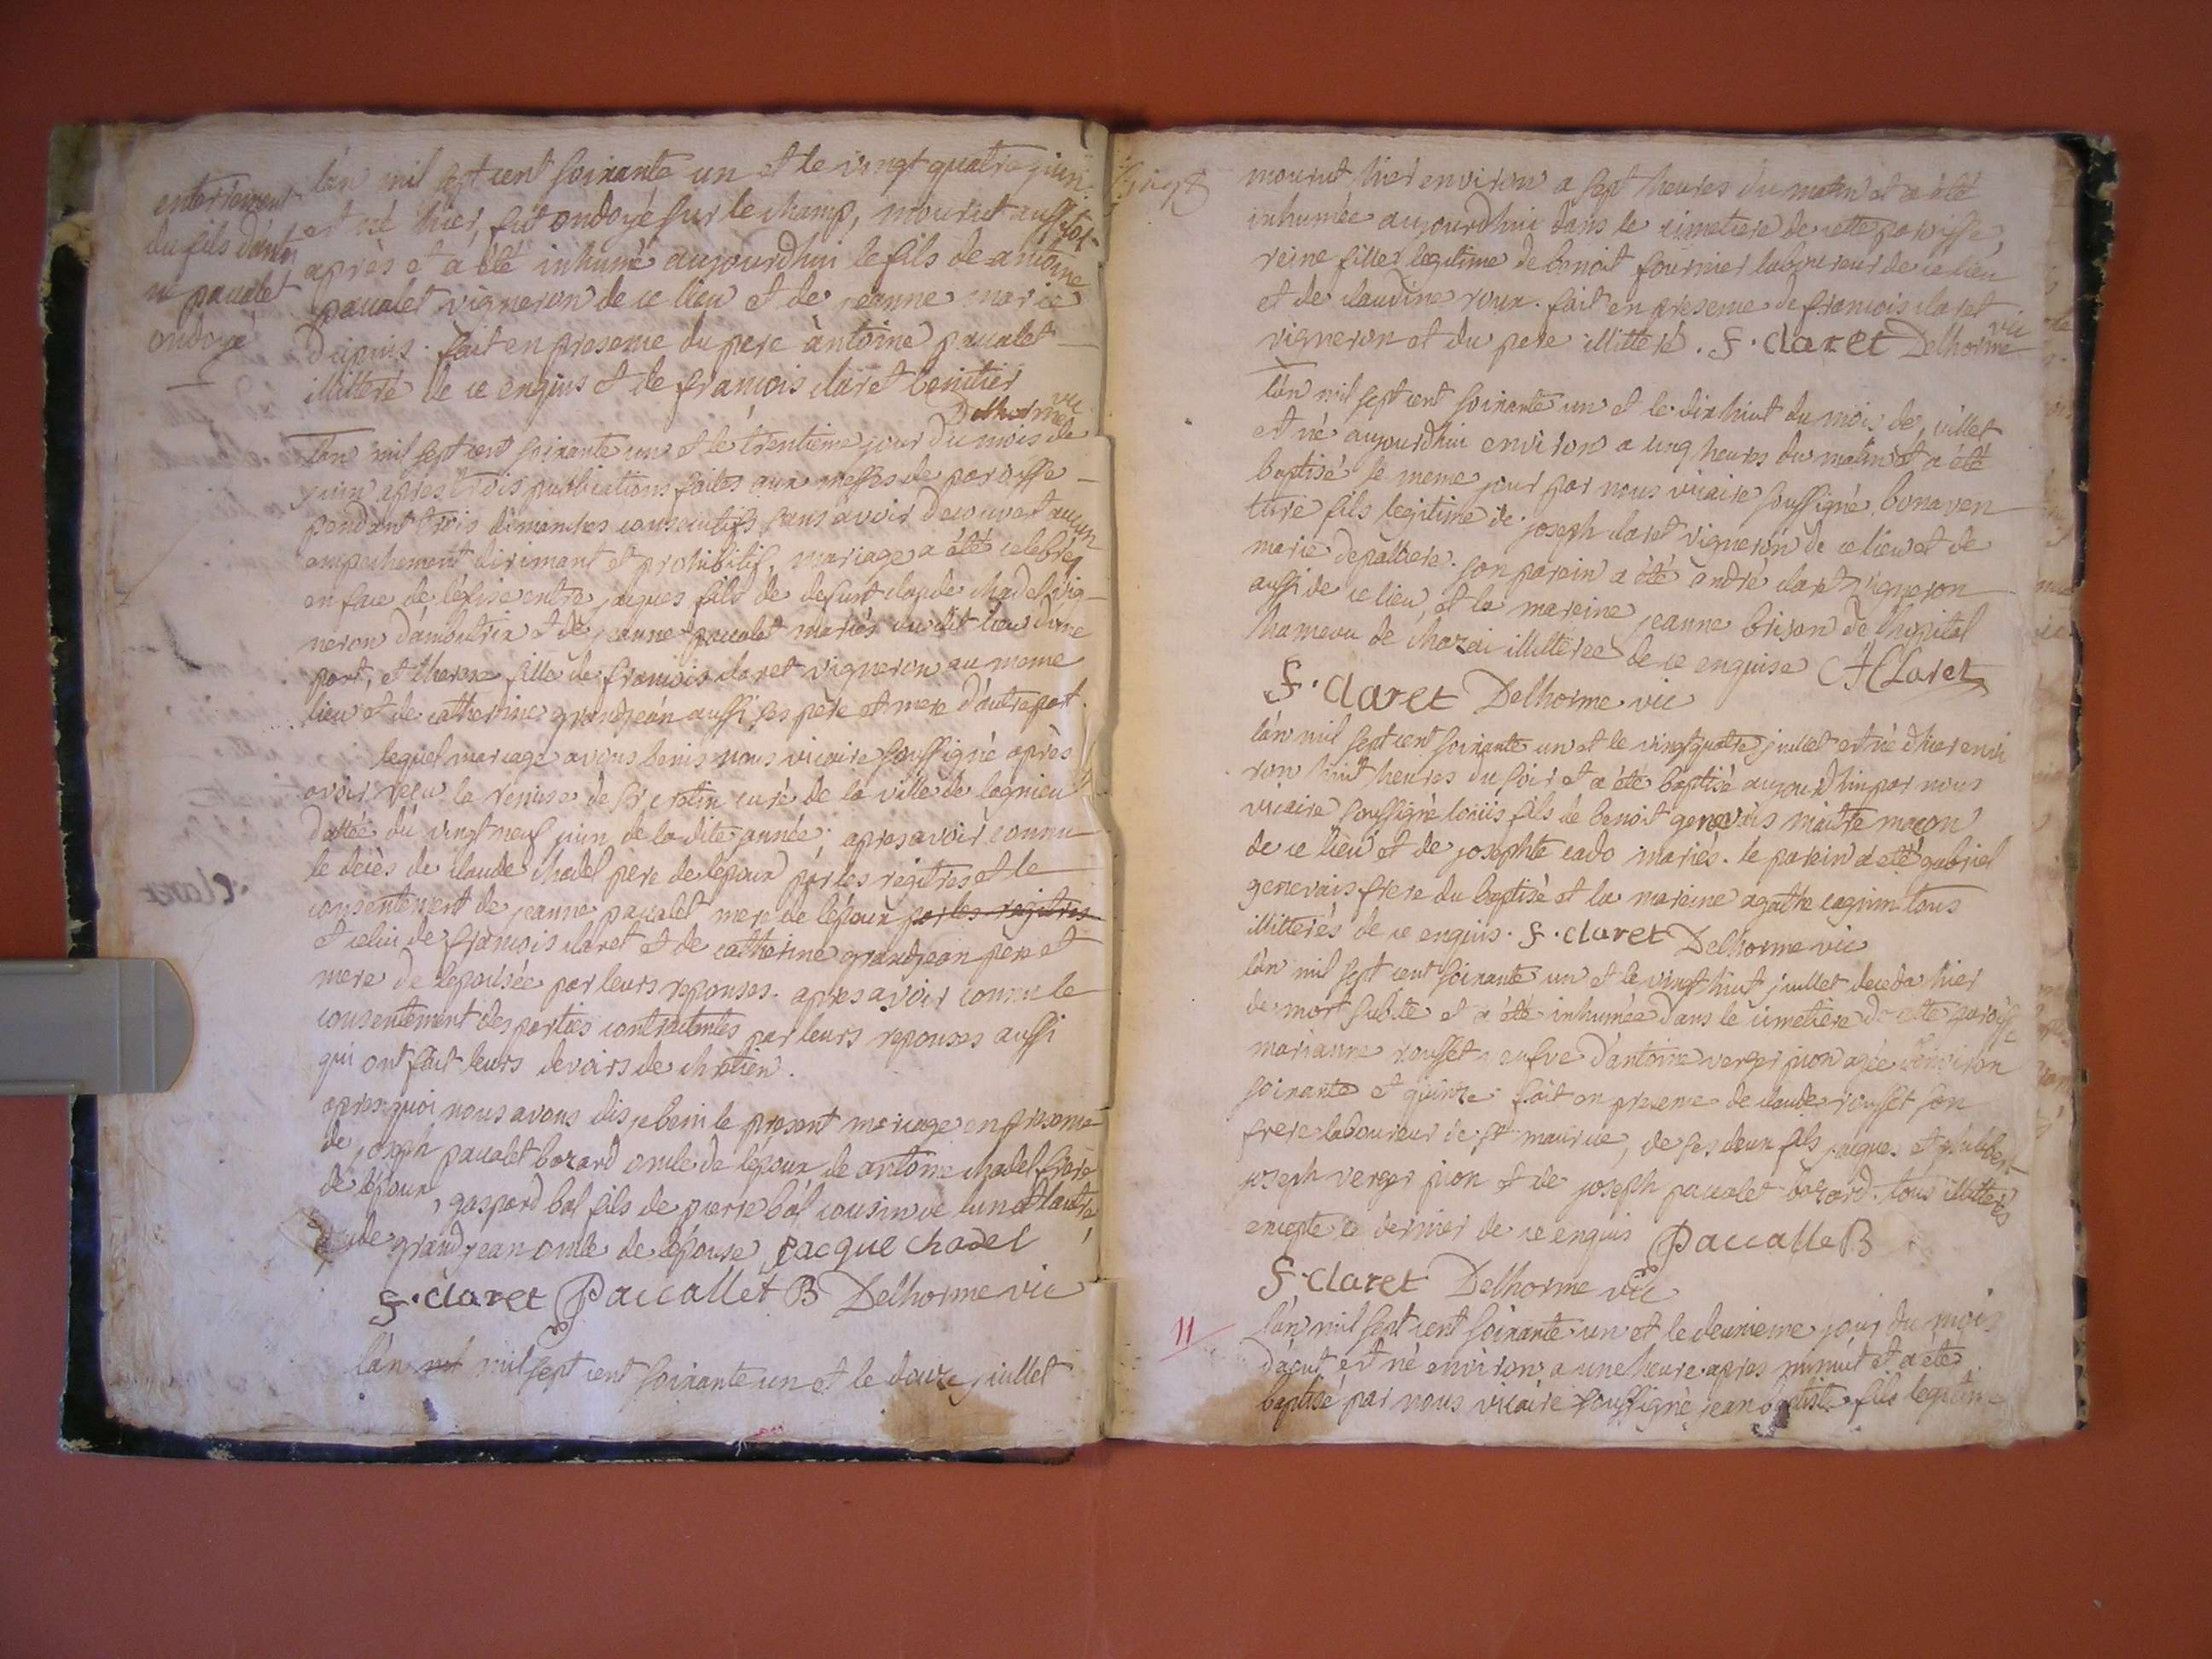 enterrement
du fils d'antoi
ne pacalet
ondoyé
l'an mil sept cent soixante un et le vingt quatre juin
est né hier, fut ondoyé sur le champ, mourut aussitot
après et a été inhumé aujourdhui le fils de antoine
pacalet vigneron de ce lieu et de jeanne marie
Dupuis. fait en presence du pere antoine pacalet
illitteré de ce enquis et de francois claret benitier
Delhorme vic
l'an mil sept cent soixante un et le trentieme jour du mois de
juin apres trois publications faites aux messes de paroisse
pendant trois dimanches consecutifs sans avoir decouvert aucun
empechement dirimant et prohibitif, mariage a été celebré
en face de l'église entre jacques fils de defunt claude chadel vig-
neron d'amboutrix et de jeanne pacalet mariés dudit lieu d'une
part, et therese fille de francois claret vigneron au meme
lieu et de catherine grandjean aussi ses pere et mere d'autre part.
lequel mariage avons benis nous vicaire soussigné après
avoir reçu la remise de sr crotin curé de la ville de lagnieu
dattée du vingt neuf juin de la dite année; apres avoir connu
le decès de claude chadel pere de l'epoux par les régitres et le
consentement de jeanne pacalet mere de l'époux par les regitres
et celui de francois claret et de catherine grandjean pere et
mere de l'epousée par leurs reponses. apres avoir connu le
consentement des parties contractantes par leurs reponses aussi
qui ont fait leurs devoirs de chretien.
apres quoi nous avons dis je beni le present mariage en presence
de joseph pacalet bozard oncle de l'époux de antoine chadel frere
de l'époux, gaspard bal fils de pierre bal cousin de lun et lautre
grandjean oncle de l'épouse, jacque chadel
F. claret Paccallet B Delhorme vic
l'an mil mil sept cent soixante un et le douze juillet
mourut hier environ a sept heures du matin et a été
inhumée aujourdhui dans le cimetiere de cette paroisse,
reine fille legitime de benoit fournier laboureur de ce lieu
et de claudine roux. fait en presence de francois claret
vigneron et du pere illitteré. F. claret Delhorme vic
l'an mil sept cent soixante un et le dixhuit du mois de juillet
est né aujourdhui environ a cinq heures du matin et a été
baptisé le meme jour par nous vicaire soussigné, bonaven
ture fils legitime de joseph claret vigneron de ce lieu et de
marie depalliere. son parein a été andré claret vigneron
aussi de ce lieu, et la mareine jeanne brison de lhopital
hameau de chazei illitterée de ce enquise A Claret
F. claret Delhorme vic
l'an mil sept cent soixante un et le vingt quatre juillet est né d'hier envi
ron huit heures du soir et a été baptisé aujourdhui par nous
vicaire soussigné louis fils de benoit genevois maitre maçon
de ce lieu et de josephte cado mariés. le parein a été gabriel
genevais frere du baptisé et la mareine agathe cagnin tous
illitterés de ce enquis. F. claret Delhorme vic
l'an mil sept cent soixante un et le vingt huit juillet deceda hier
de mort subite et a été inhumée dans le cimetiere de cette paroisse
marianne rousset veufve d'antoine verger pion agée d'environ
soixante et quinze. fait en presence de claude rousset son
frere laboureur de st maurice, de ses deux fils jacques et philibert
joseph verger pion et de joseph pacalet bozard. tous illitterés
excepte ce dernier de ce enquis Paccalle B
F. claret Delhorme vic
11
l'an mil sept cent soixante un et le deuxieme jour du mois
d'aout est né environ a une heure apres minuit et a été
baptisé par nous vicaire soussigné jean baptiste fils legitime